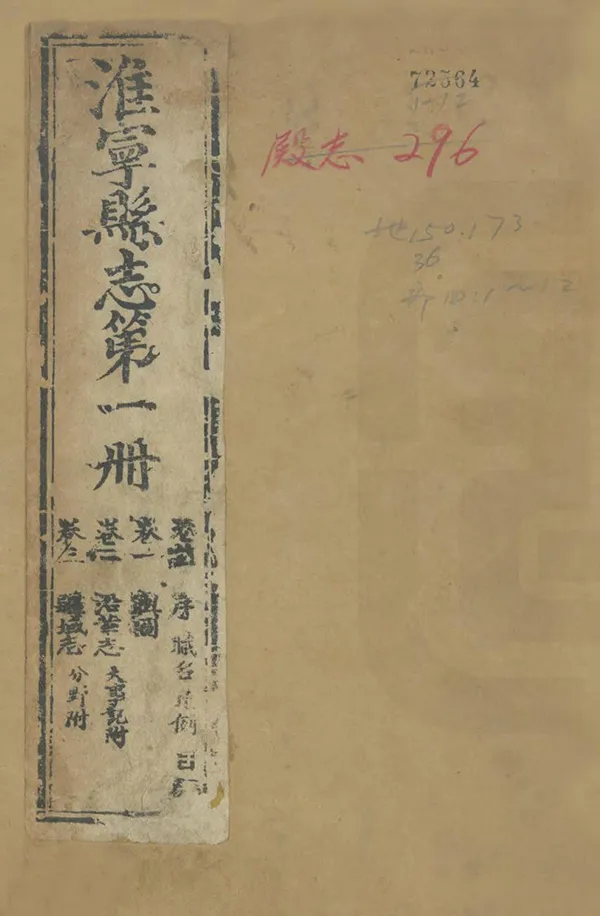 淮寧縣志第一冊
卷首 序 職名 凡例 目錄
卷一 輿圖
卷二 沿革志 大事記附
卷三 疆域志 分野附
72564
1-12
殿志 296
地150.173
36